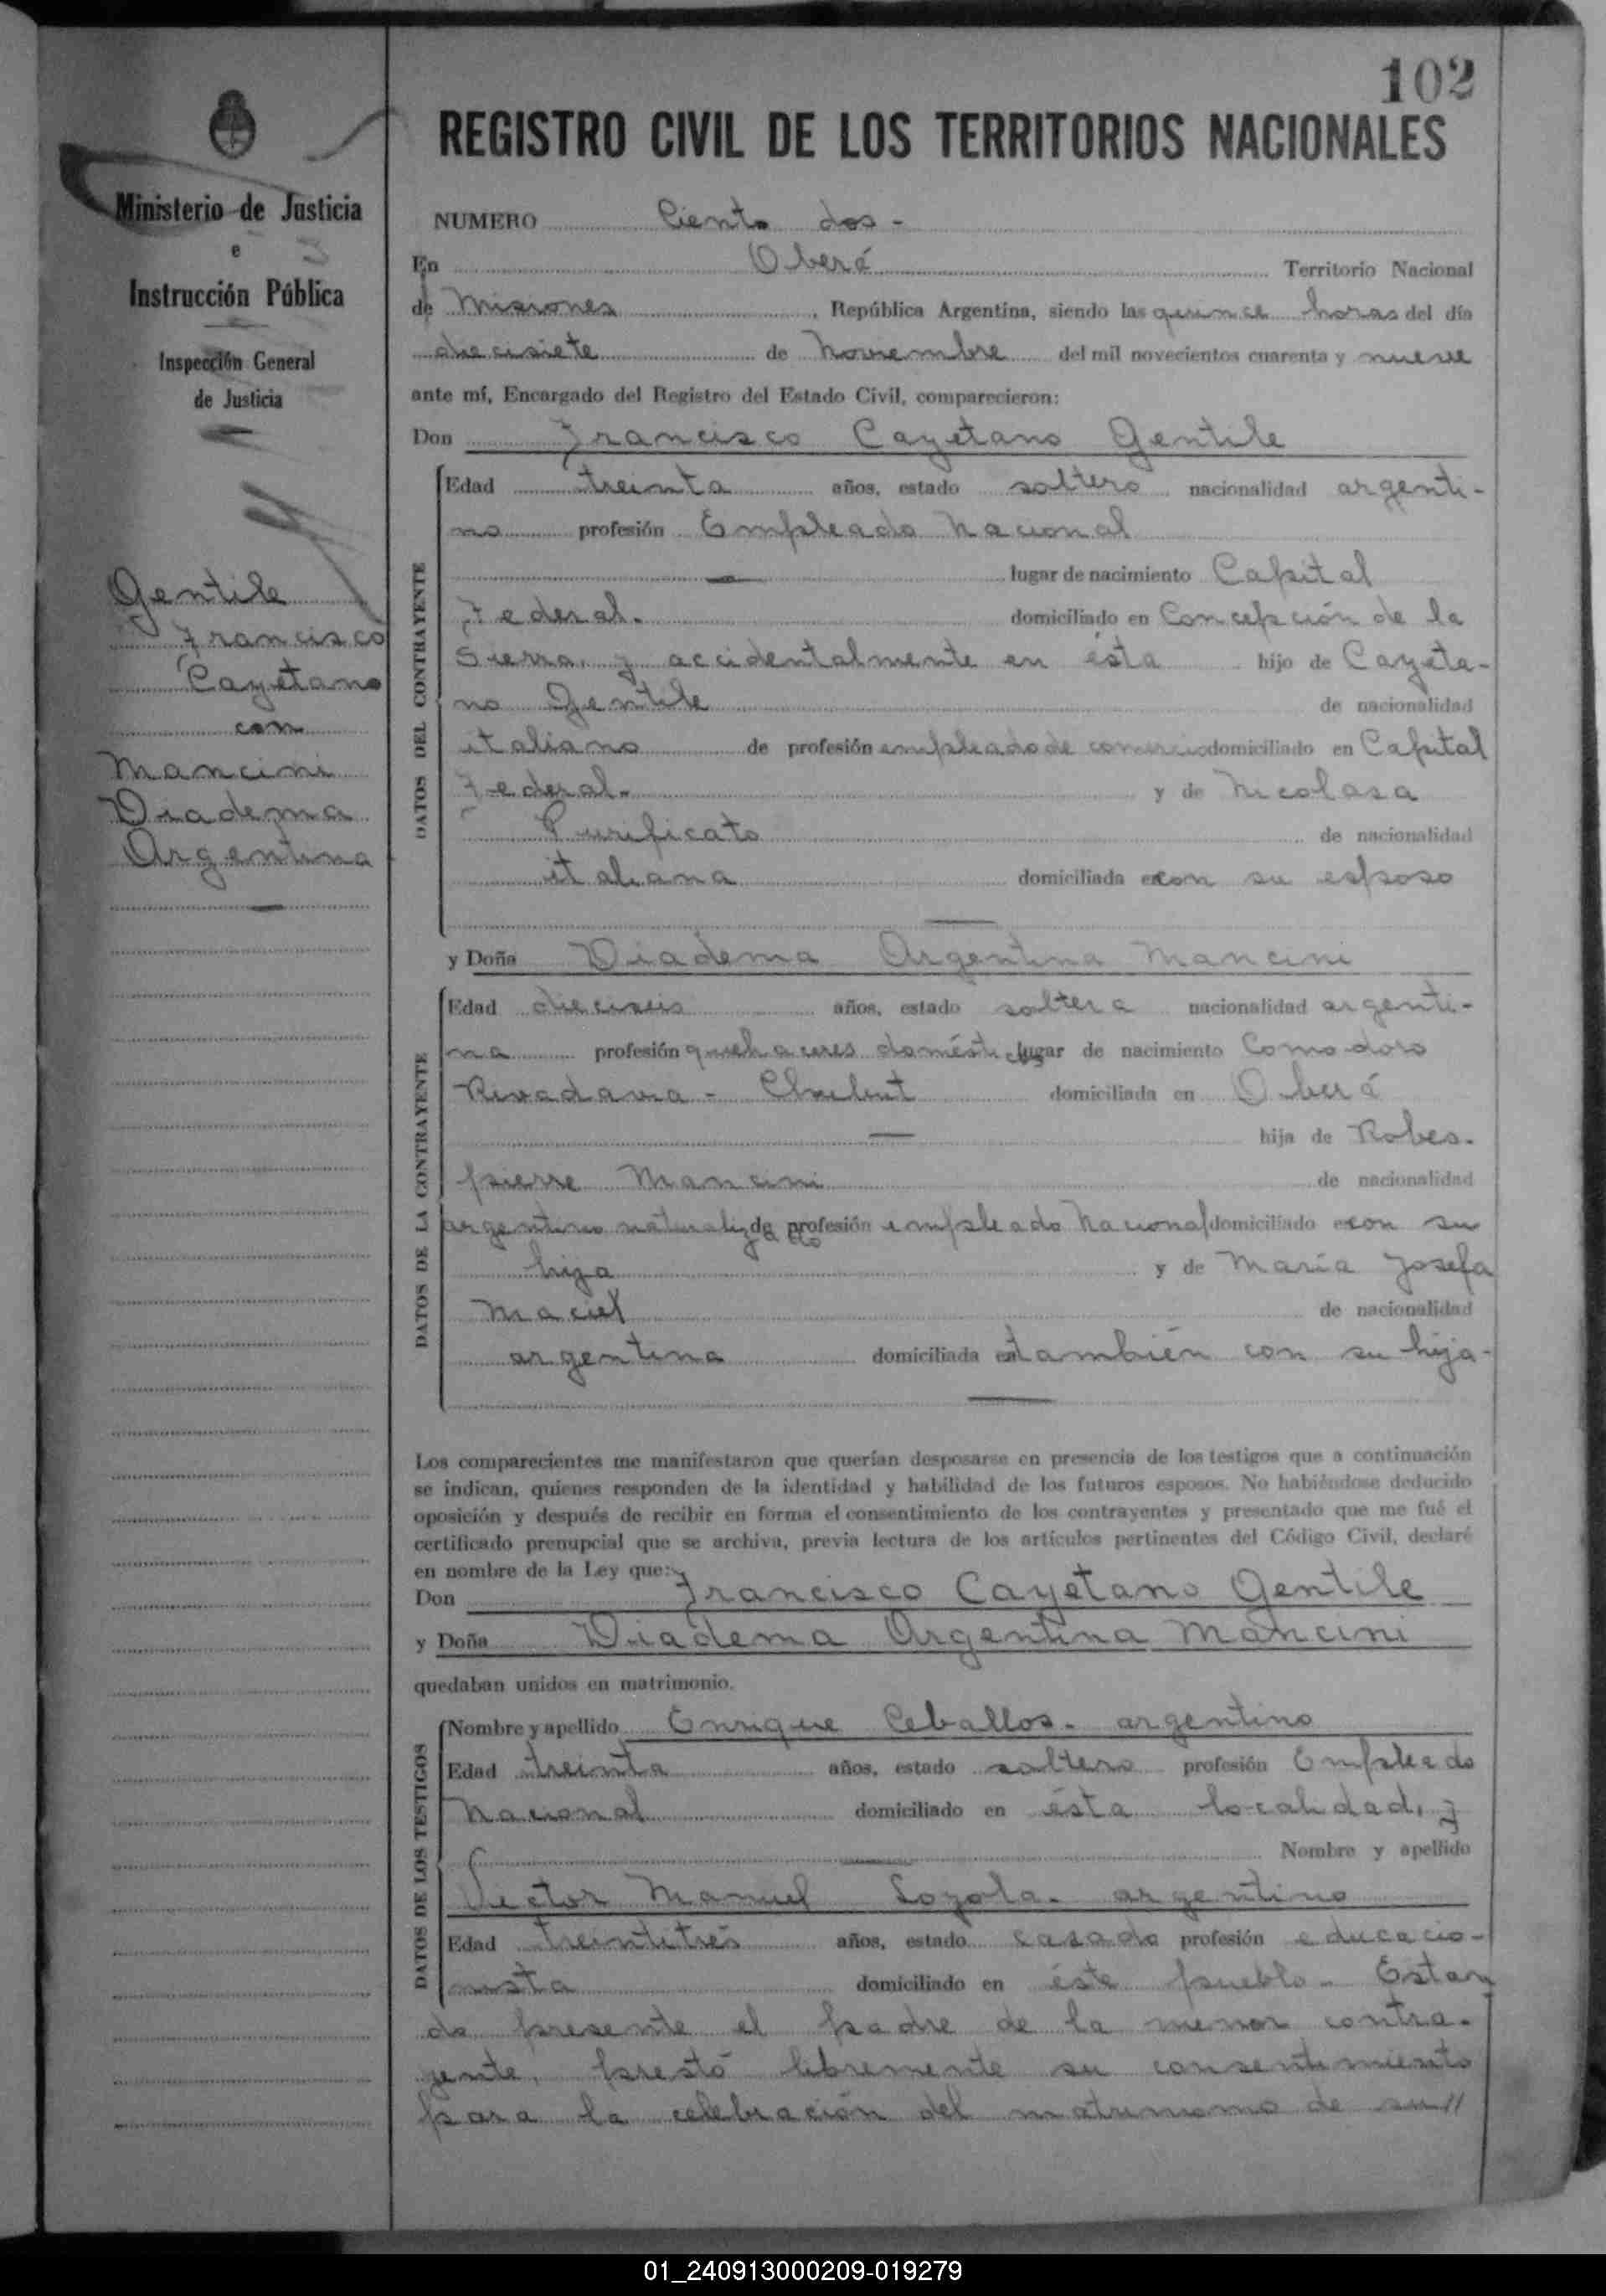 102
REGISTRO CIVIL DE LOS TERRITORIOS NACIONALES
Ministerio de Justicia
e
Instrucción Pública
Inspección General
de Justicia
Gentile
Francisco
Cayetano
con
Mancini
Diadema
Argentina
NUMERO Ciento dos -
En Oberá Territorio Nacional
de Misiones, República Argentina, siendo las quince horas del día
diecisiete de Noviembre del mil novecientos cuarenta y nueve
ante mí, Encargado del Registro del Estado Civil, comparecieron:
Don Francisco Cayetano Gentile
DATOS DEL CONTRAYENTE
Edad treinta años, estado soltero nacionalidad argenti-
no profesión Empleado Nacional
lugar de nacimiento Capital
Federal. domiciliado en Concepción de la
Sierra, y accidentalmente en ésta hijo de Cayeta-
no Gentile de nacionalidad
italiano de profesión empleado de comercio domiciliado en Capital
Federal. y de Nicolasa
Purificato de nacionalidad
italiana domiciliada en con su esposo
y Doña Diadema Argentina Mancini
DATOS DE LA CONTRAYENTE
Edad dieciseis años, estado soltera nacionalidad argenti-
na profesión quehaceres domésticos lugar de nacimiento Comodoro
Rivadavia - Chubut domiciliada en Oberá
hija de Robes-
pierre Mancini de nacionalidad
argentino naturalizado de profesión empleado Nacional domiciliado en con su
hija y de María Josefa
Maciel de nacionalidad
argentina domiciliada en también con su hija-
Los comparecientes me manifestaron que querían desposarse en presencia de los testigos que a continuación
se indican, quienes responden de la identidad y habilidad de los futuros esposos. No habiéndose deducido
oposición y después de recibir en forma el consentimiento de los contrayentes y presentado que me fué el
certificado prenupcial que se archiva, previa lectura de los artículos pertinentes del Código Civil, declaré
en nombre de la Ley que:
Don Francisco Cayetano Gentile
y Doña Diadema Argentina Mancini
quedaban unidos en matrimonio.
DATOS DE LOS TESTIGOS
Nombre y apellido Enrique Ceballos. argentino
Edad treinta años, estado soltero profesión Empleado
Nacional domiciliado en ésta localidad, y
Nombre y apellido
Victor Manuel Loyola. argentino
Edad treintitrés años, estado casado profesión educacio-
nista domiciliado en éste pueblo. Estan
do presente el padre de la menor contra-
yente, prestó libremente su consentimiento
para la celebración del matrimonio de su//
01_240913000209-019279